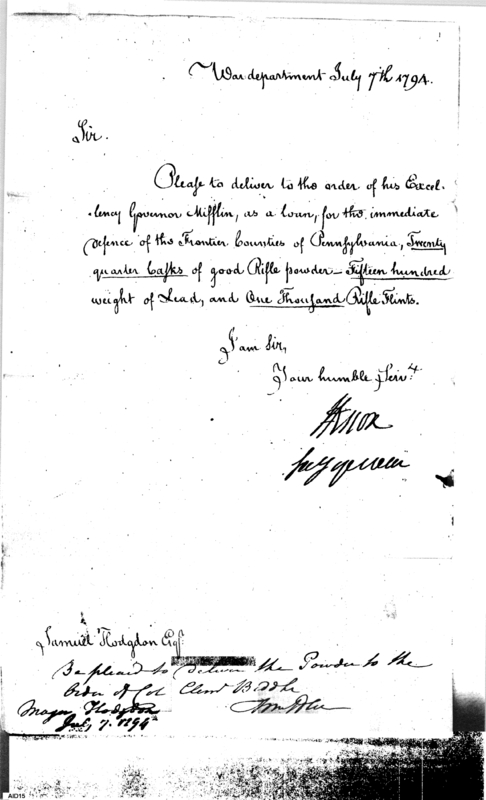 War department July 7th 1794.
Sir.
Please to deliver to the order of his Excel-
-lency Governor Mifflin, as a loan, for the immediate
defence of the Frontier Counties of Pennsylvania, Twenty
quarter Casks of good Rifle powder - Fifteen hundred
weight of Lead, and One Thousand Rifle Flints.
I am Sir,
Your humble Servt
HKnox
secy of war
Samuel Hodgdon Esqr
Be pleased to deliver the Powder to the
Order of Col Clemt Biddle
Major Hodgdon
July 7. 1794
AID15